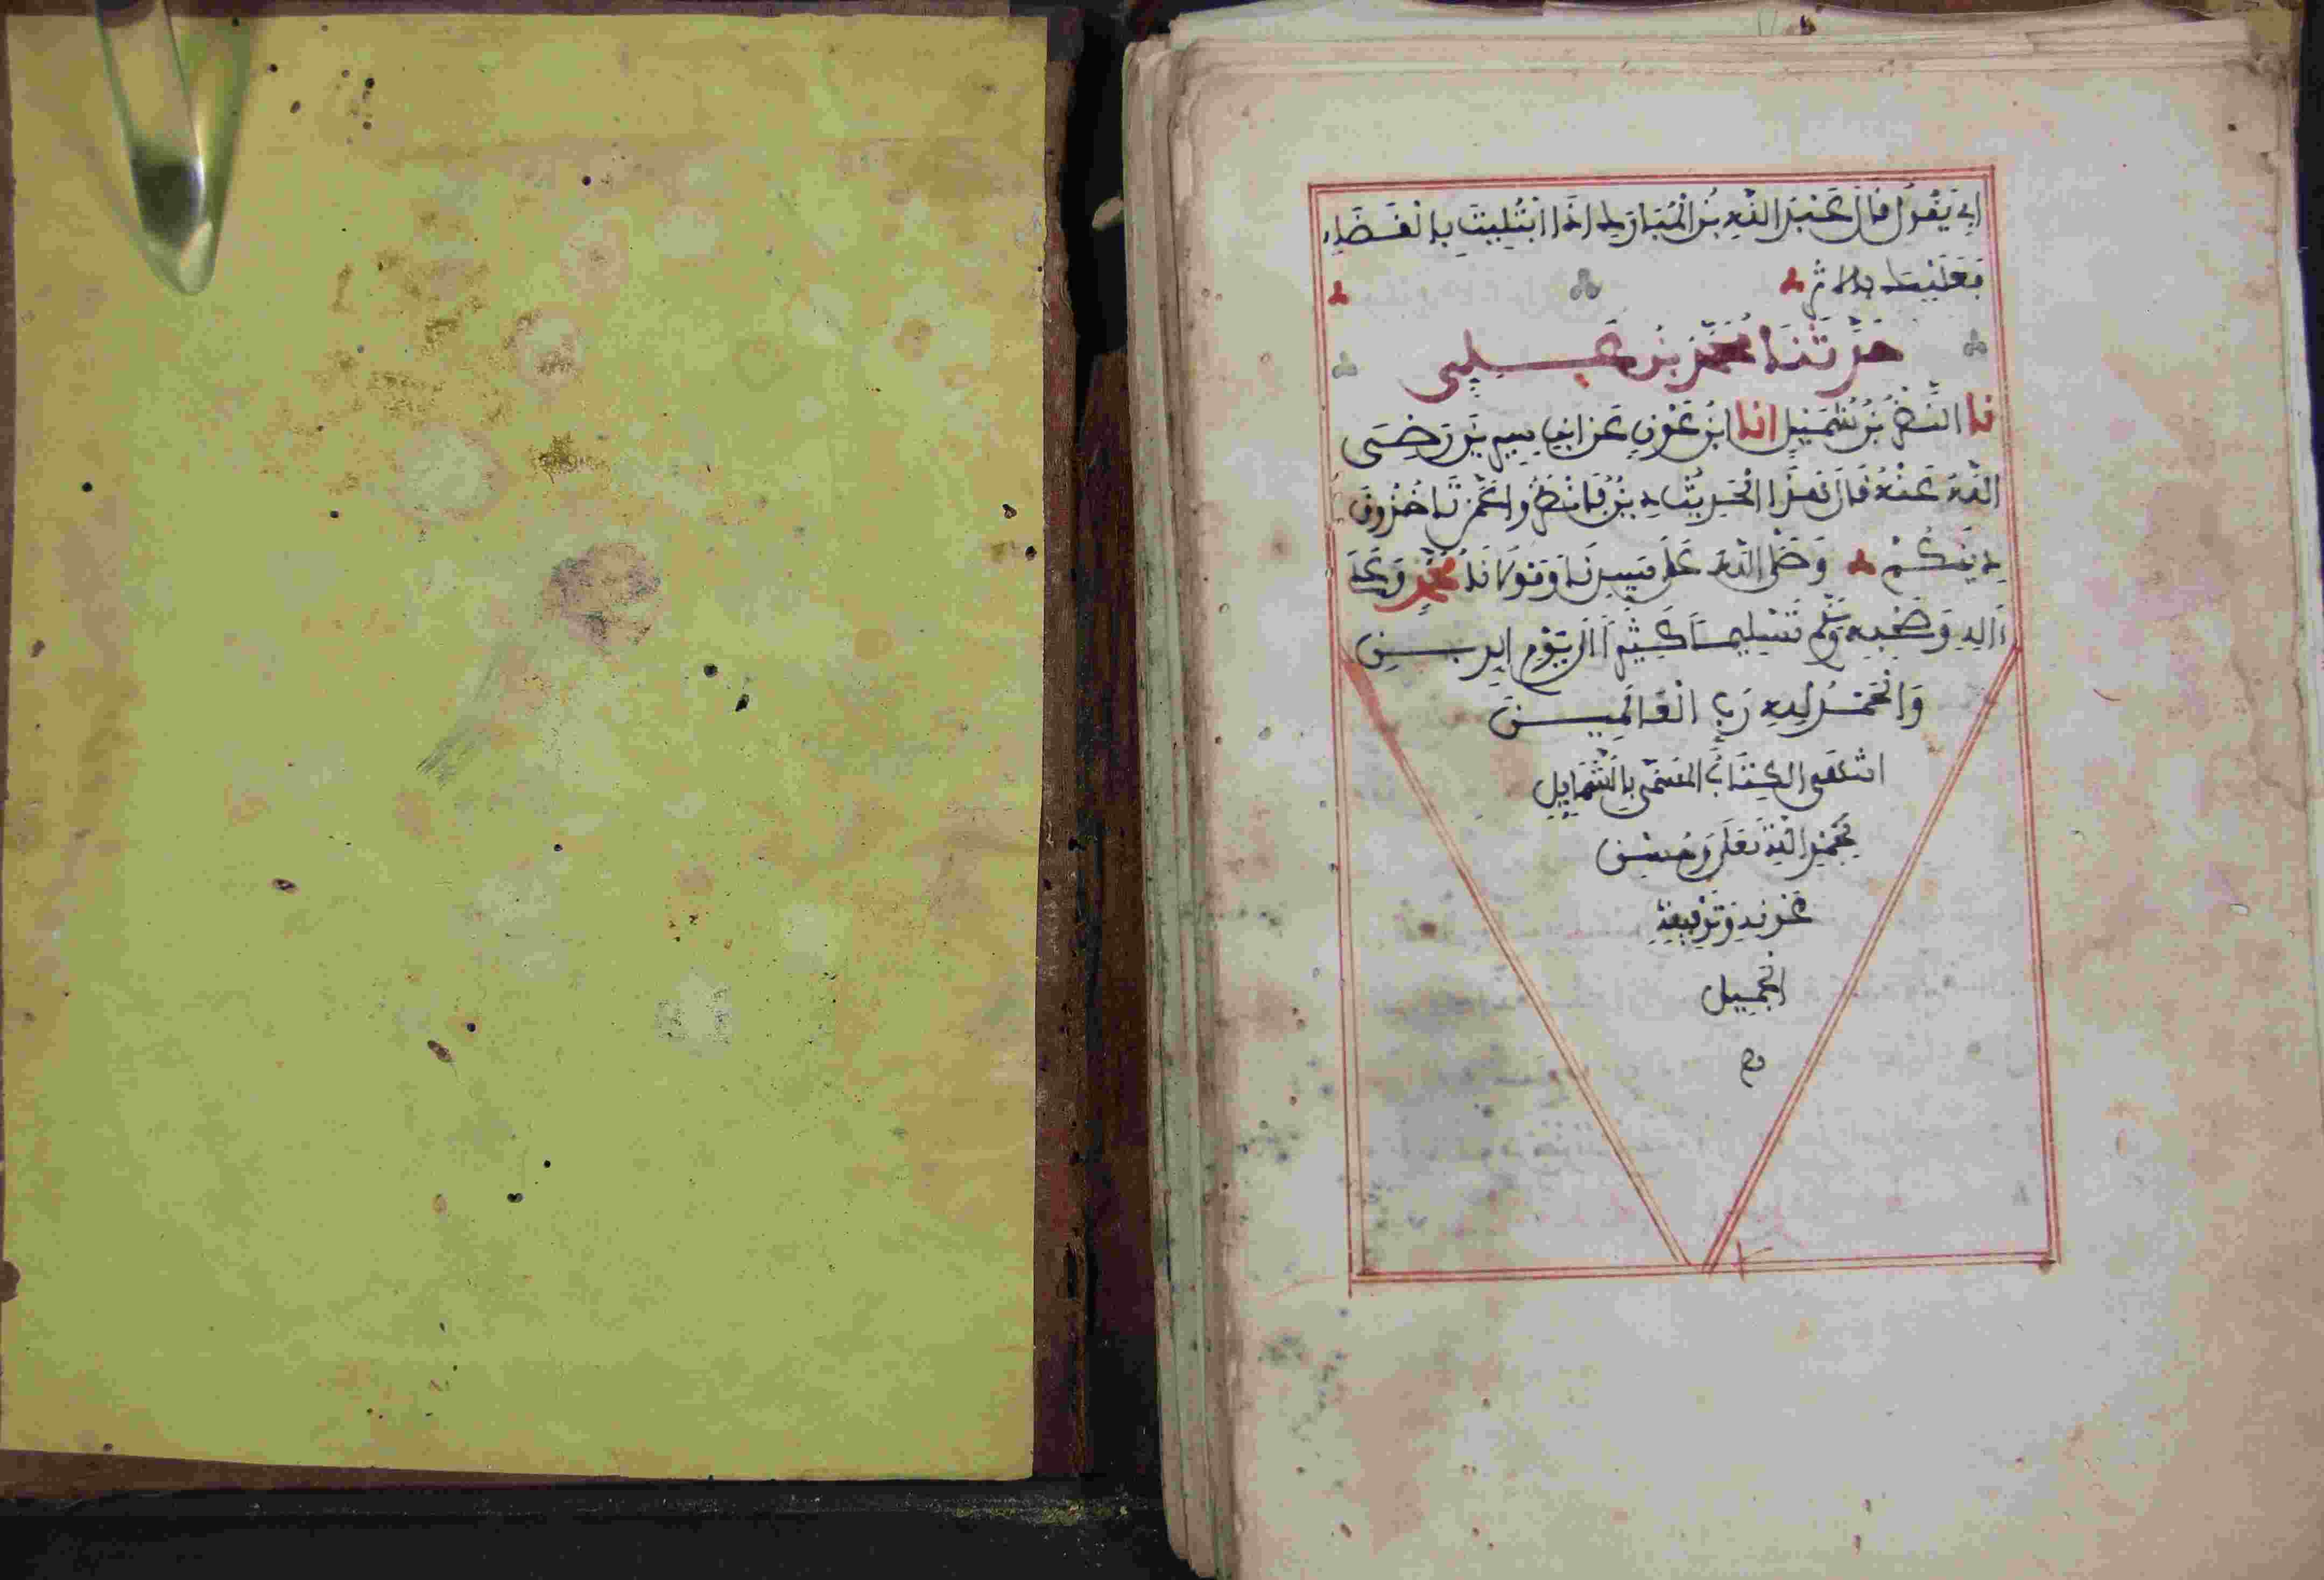 ابي يَقُولُ قالَ عَبْدُ اللهِ بْنُ الْمُبَارَكِ اِذَا ابْتُلِيتَ بِالْقَضَاءِ
فَعَلَيْكَ بالاثرِ
حَدَّثَنَا مُحَمَّدُ بْنُ عَلِيٍّ
نا النَّضْرُ بْنُ شُمَيْلٍ انا ابْنُ عَوْنٍ عَنِ ابْنِ سِيرِينَ رَضِيَ
اللهُ عَنْهُ قَالَ هَذَا الْحَدِيثُ دِينٌ فَانْظُرُوا عَمَّنْ تَاخُذُونَ
دِينَكُمْ وَصَلَّى اللهُ عَلَى سَيِّدِنَا وَمَوْلَانَا مُحَمَّدٍ وَعَلَى
ءَالِهِ وَصَحْبِهِ وَسَلَّمَ تَسْلِيمًا كَثِيرًا اِلَى يَوْمِ الدِّينِ
وَالْحَمْدُ لِلهِ رَبِّ الْعَالَمِينَ
انتهى الكِتَابُ المُسَمَّى بِالشَّمَايِلِ
بِحَمْدِ اللهِ تَعَلَى وَحُسْنِ
عَوْنِهِ وَتَوْفِيقِهِ
الْجَمِيلِ